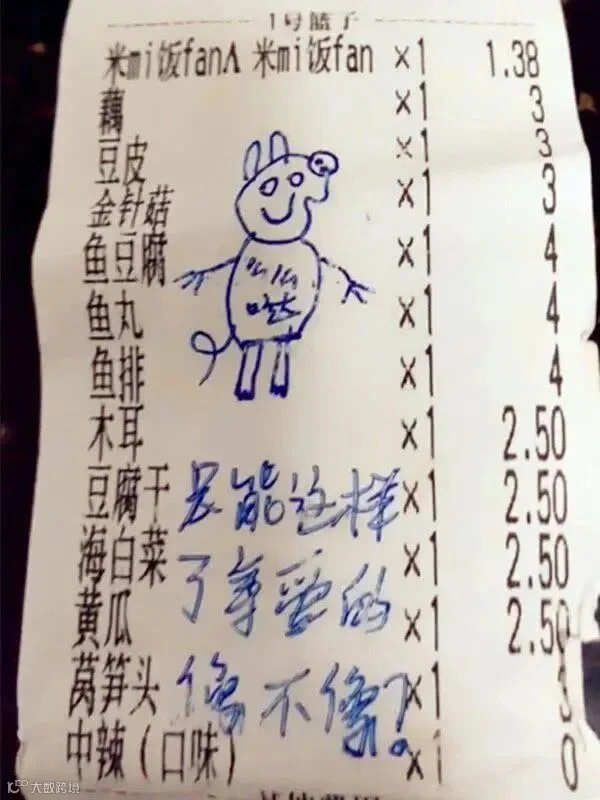 1号篮子
米mi饭fanΛ 米mi饭fan ×1 1.38
藕 ×1 3
豆皮 ×1 3
金针菇 ×1 3
鱼豆腐 ×1 4
么么
哒
鱼丸 ×1 4
鱼排 ×1 4
木耳 ×1 2.50
豆腐干 ×1 2.50
只能这样
海白菜 ×1 2.50
了亲爱的
黄瓜 ×1 2.50
莴笋头 ×1 3
像不像?
中辣(口味) ×1 0
大数跨境